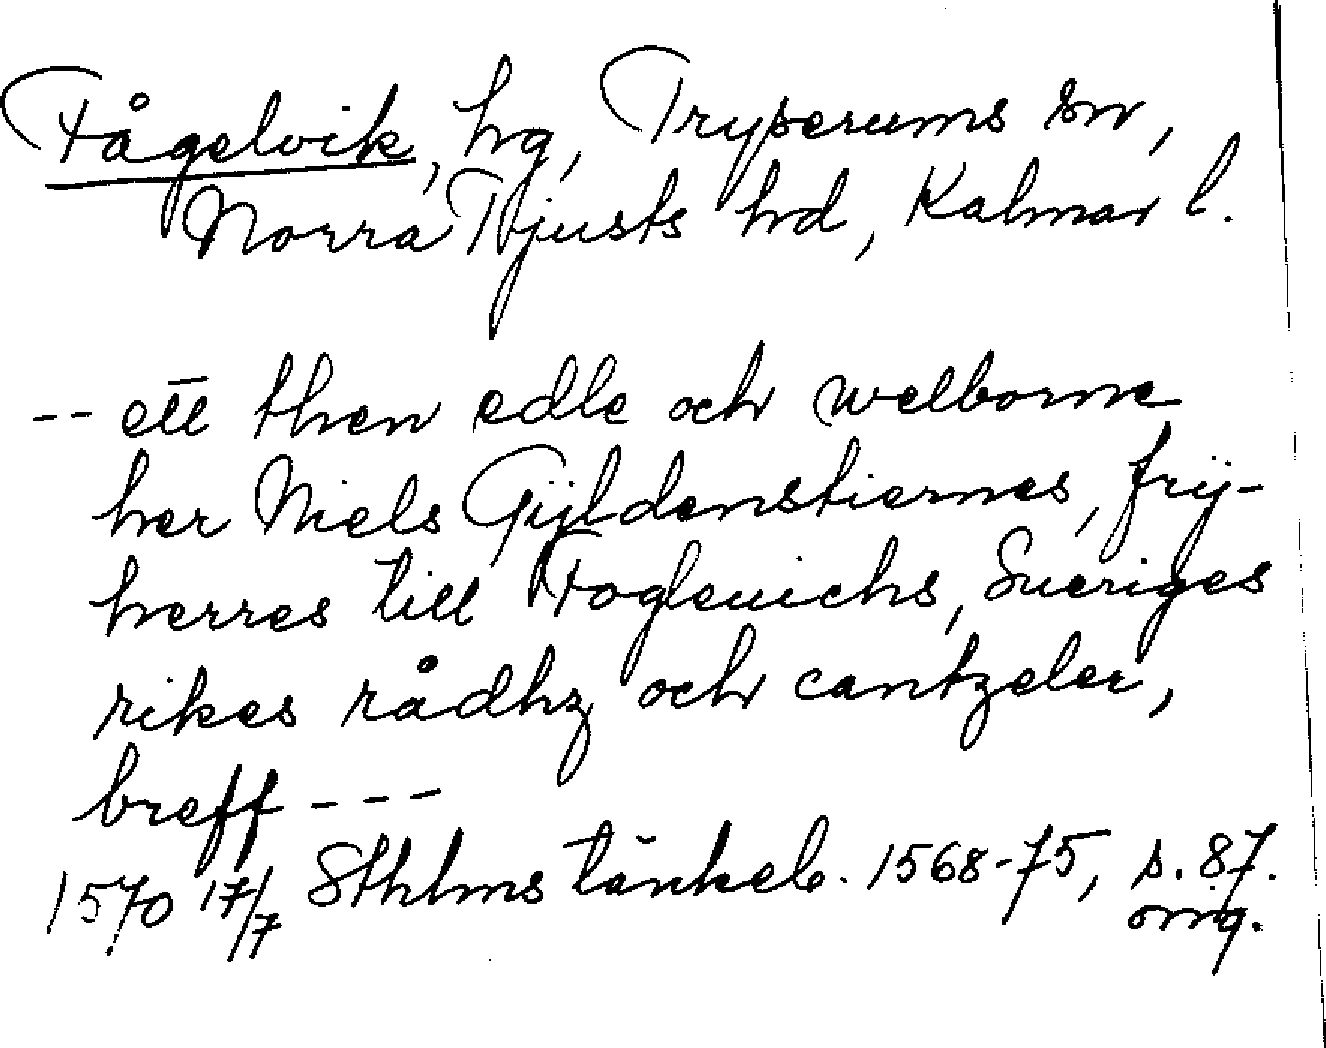 Fågelvik, hg, Tryserums sn,
Norra Tjusts hd, Kalmar l.
-- ett then edle och welborne
her Niels Gÿldenstiernes, frÿ-
herres till Fogleuichs, Sueriges
rikes rådhz och cantzeler,
breff ---
1570 17/7 Sthlms tänkeb. 1568-75, s. 87.
omg.